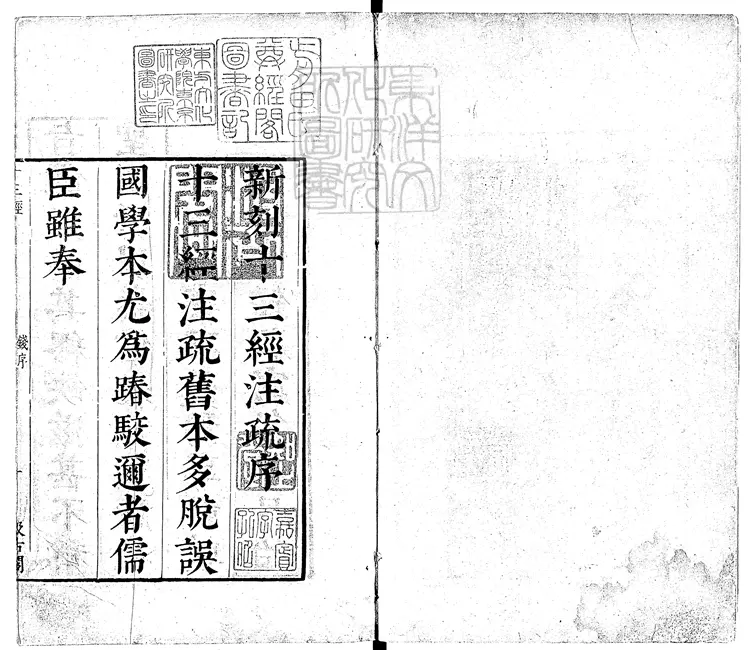 新刻十三經注疏序
十三經注疏舊本多脫誤
國學本尤爲踳駮邇者儒
臣雖奉
十三經
錢序
汲古閣
東方文化
學院東京
研究所
圖書之印
尊經閣
圖書記
東洋文
化研究
所圖書